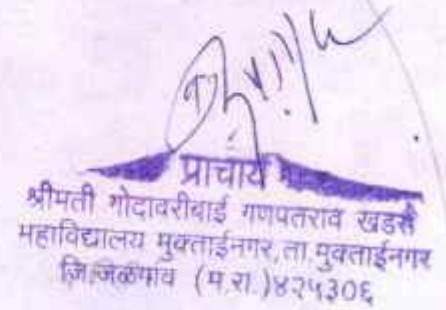 प्राचार्य
श्रीमती गोदावरीबाई गणपतराव खडसे
महाविद्यालय मुक्ताईनगर, ता. मुक्ताईनगर
जि. जळगांव (म.रा.)४२५३०६